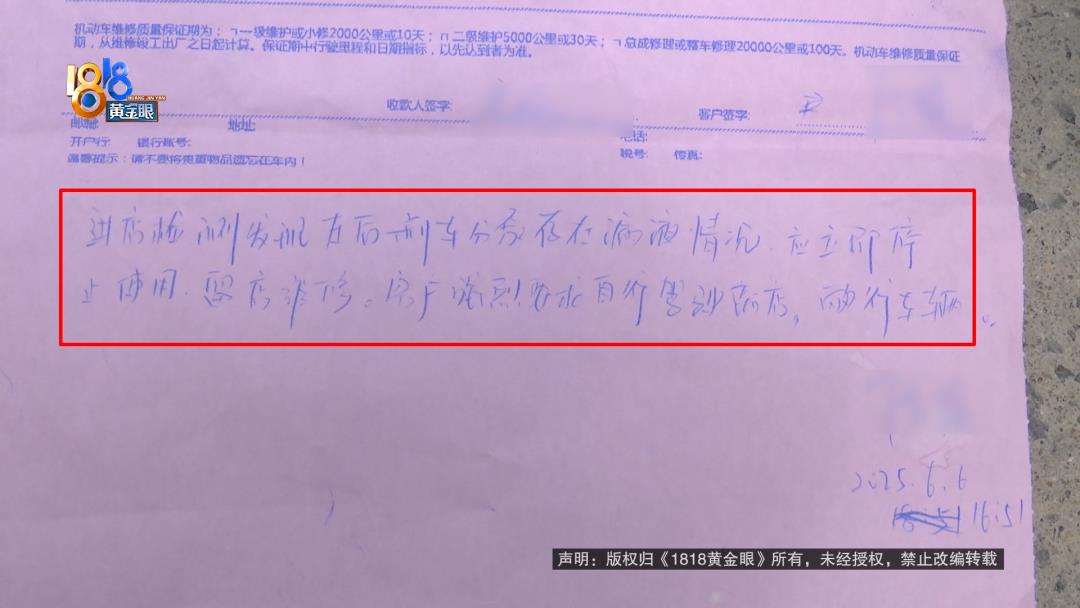 机动车维修质量保证期为：㇕一级维护或小修2000公里或10天；㇕二级维护5000公里或30天；㇕总成修理或整车修理20000公里或100天。机动车维修质量保证
期，从维修竣工出厂之日起计算。保证期中行驶里程和日期指标，以先达到者为准。
1818
HUANG JIN YAN
黄金眼
收款人签字:
客户签字:
邮编: 地址:
电话:
开户行: 银行账号:
税号: 传真:
温馨提示：请不要将贵重物品遗忘在车内！
进店检测发现左后刹车分泵存在漏液情况，应立即停
止使用，留店维修。客户强烈要求自行驾驶离店。车辆。
2025.6.6
16:51
声明：版权归《1818黄金眼》所有，未经授权，禁止改编转载